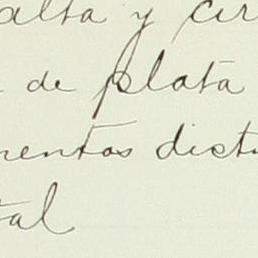 alta y cir
de plata
mentos dist
tal